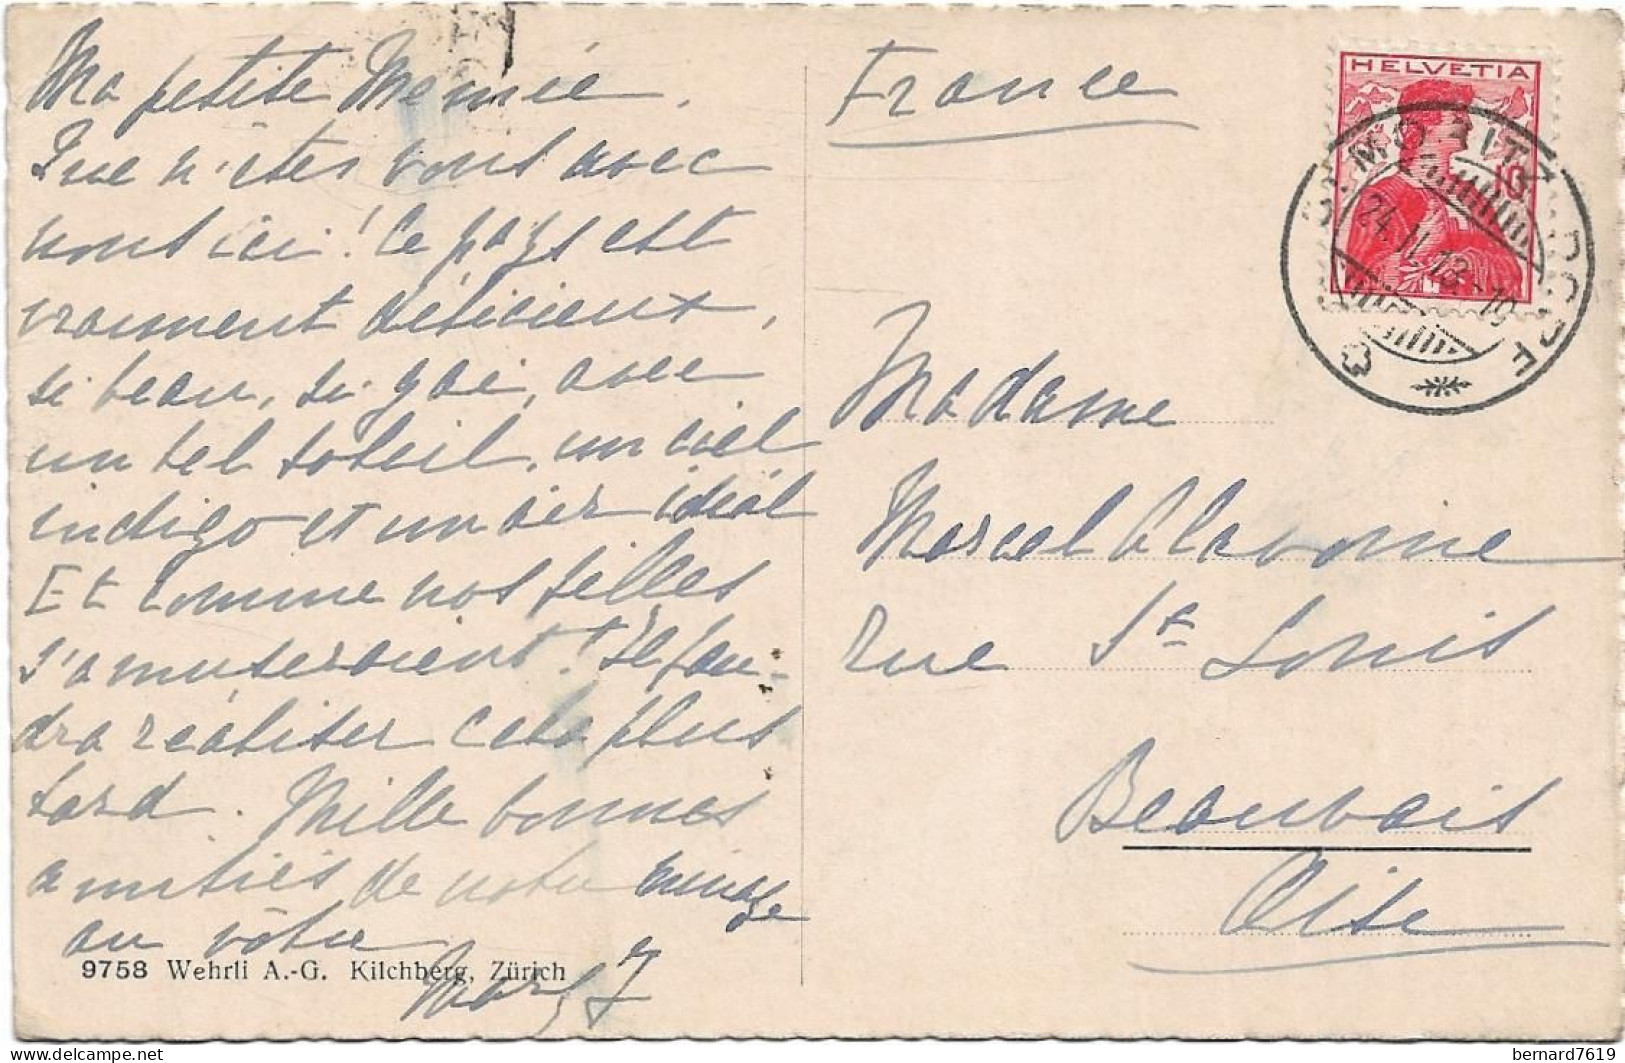 Ma petite Mémie,
Que n'êtes vous avec
nous ici ! Ce pays est
vraiment délicieux,
si beau, si gai, avec
un bel soleil, un ciel
indigo et un air idéal
Et comme nos filles
s'amuseraient ! Il fau-
dra réaliser cela plus
tard. Mille bonnes
amitiés de notre ménage
au vôtre
9758 Wehrli A.-G. Kilchberg, Zürich
France
HELVETIA
10
ST. MORITZ-DORF
24. II. 13.-10
Madame
Marcel
rue St Louis
Beauvais
Oise
bernard7619